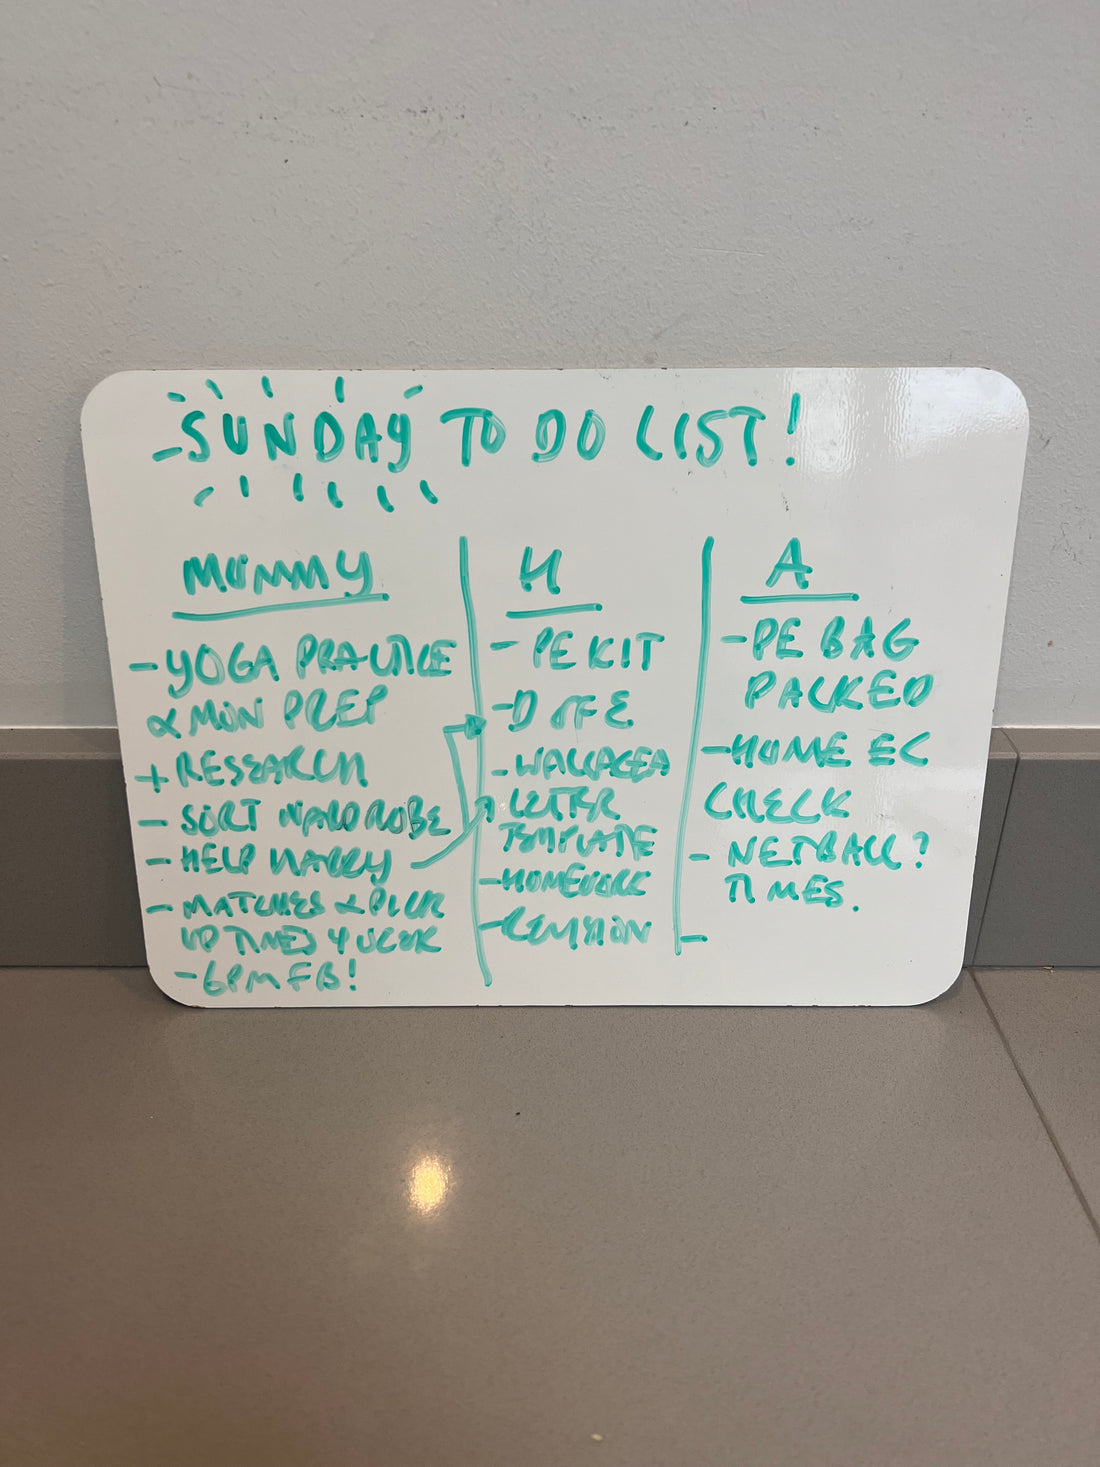 SUNDAY TO DO LIST!
MUMMY
- YOGA PRACTICE
& MON PREP
+ RESEARCH
- SORT WARDROBE
- HELP HARRY
- MATCHES & PICK
UP TIMES 4 WEEK
- 6PM FB!
H
- PE KIT
- D OF E
- WALLACEA
LETTER
TEMPLATE
- HOMEWORK
- REVISION
A
- PE BAG
PACKED
- HOME EC
CHECK
- NETBALL?
TIMES.
-